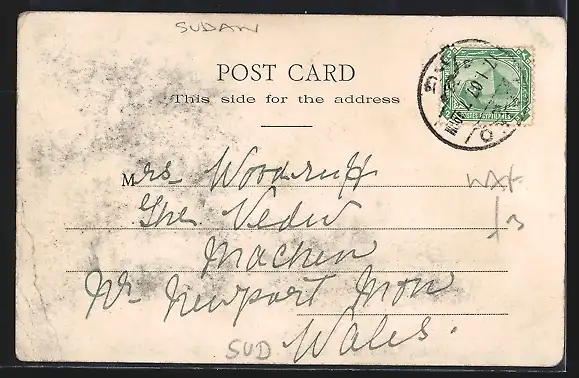 SUDAN
POST CARD
This side for the address
POSTES EGYPTIENNES
Mrs Woodruff
The Vedw
Machen
Nr Newport Mon
Wales.
SUD